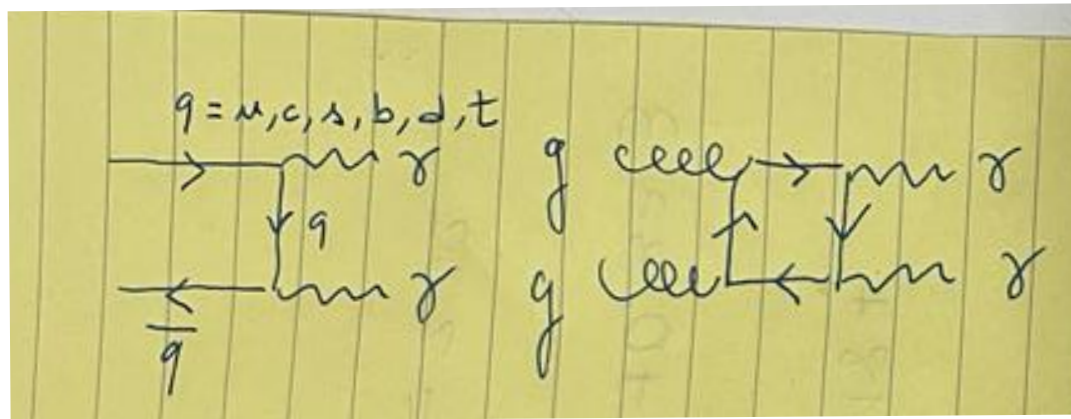 q = u, c, s, b, d, t
γ
g
γ
q
γ
g
γ
q̅